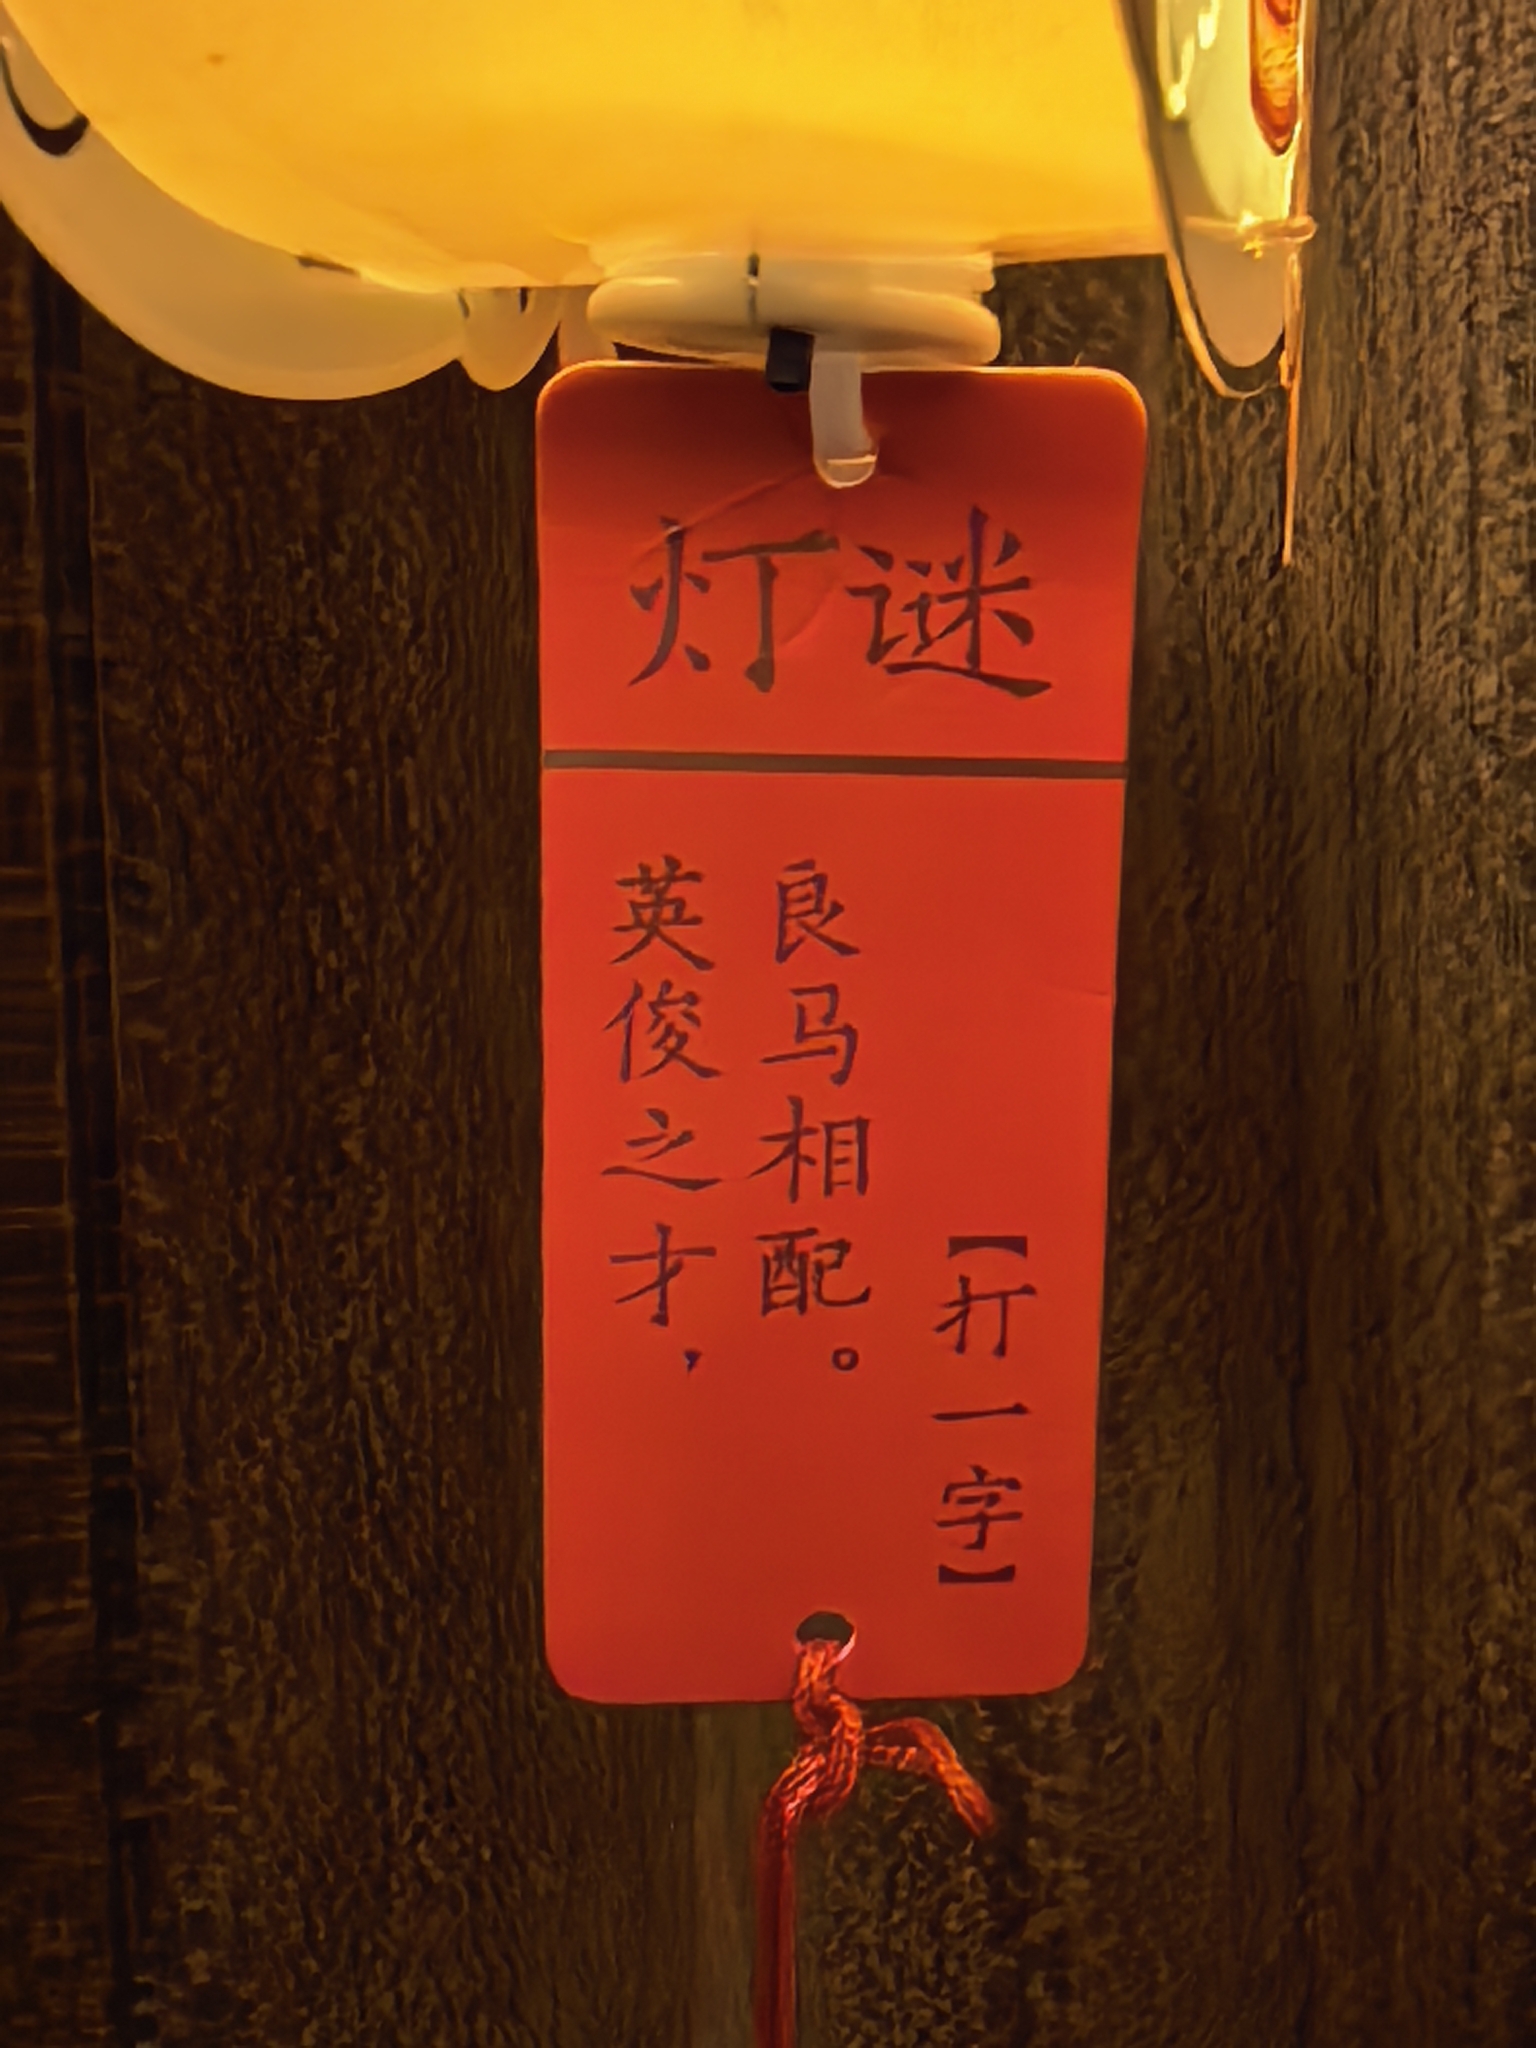 灯谜
英俊之才，
良马相配。
【打一字】